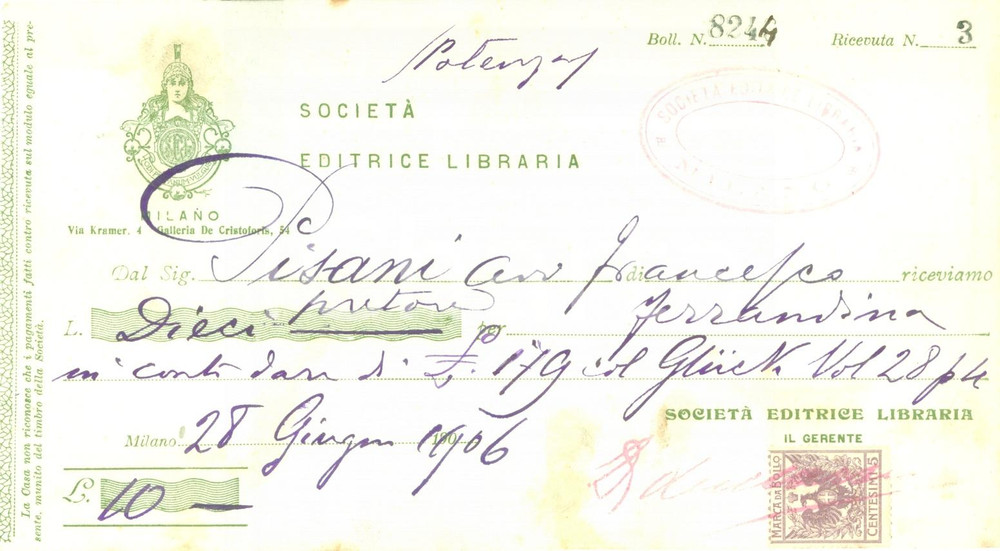 Boll. N. 8244 Ricevuta N. 3
Potenza
SOCIETÀ
EDITRICE LIBRARIA
SOCIETÀ EDITRICE LIBRARIA
MILANO
Via Kramer. 4 - Galleria De Cristoforis, 54
Dal Sig. Pisani avv Francesco di riceviamo
pretore Ferrandina
L. Dieci per
in conto dare di £. 179 col Glück Vol 28 p 4
SOCIETÀ EDITRICE LIBRARIA
IL GERENTE
Milano 28 Giugno 1906
£. 10 —
MARCA DA BOLLO
CENTESIMI 5
La Casa non riconosce che i pagamenti fatti contro ricevuta sul modulo eguale al pre-
sente, munito del timbro della Società.